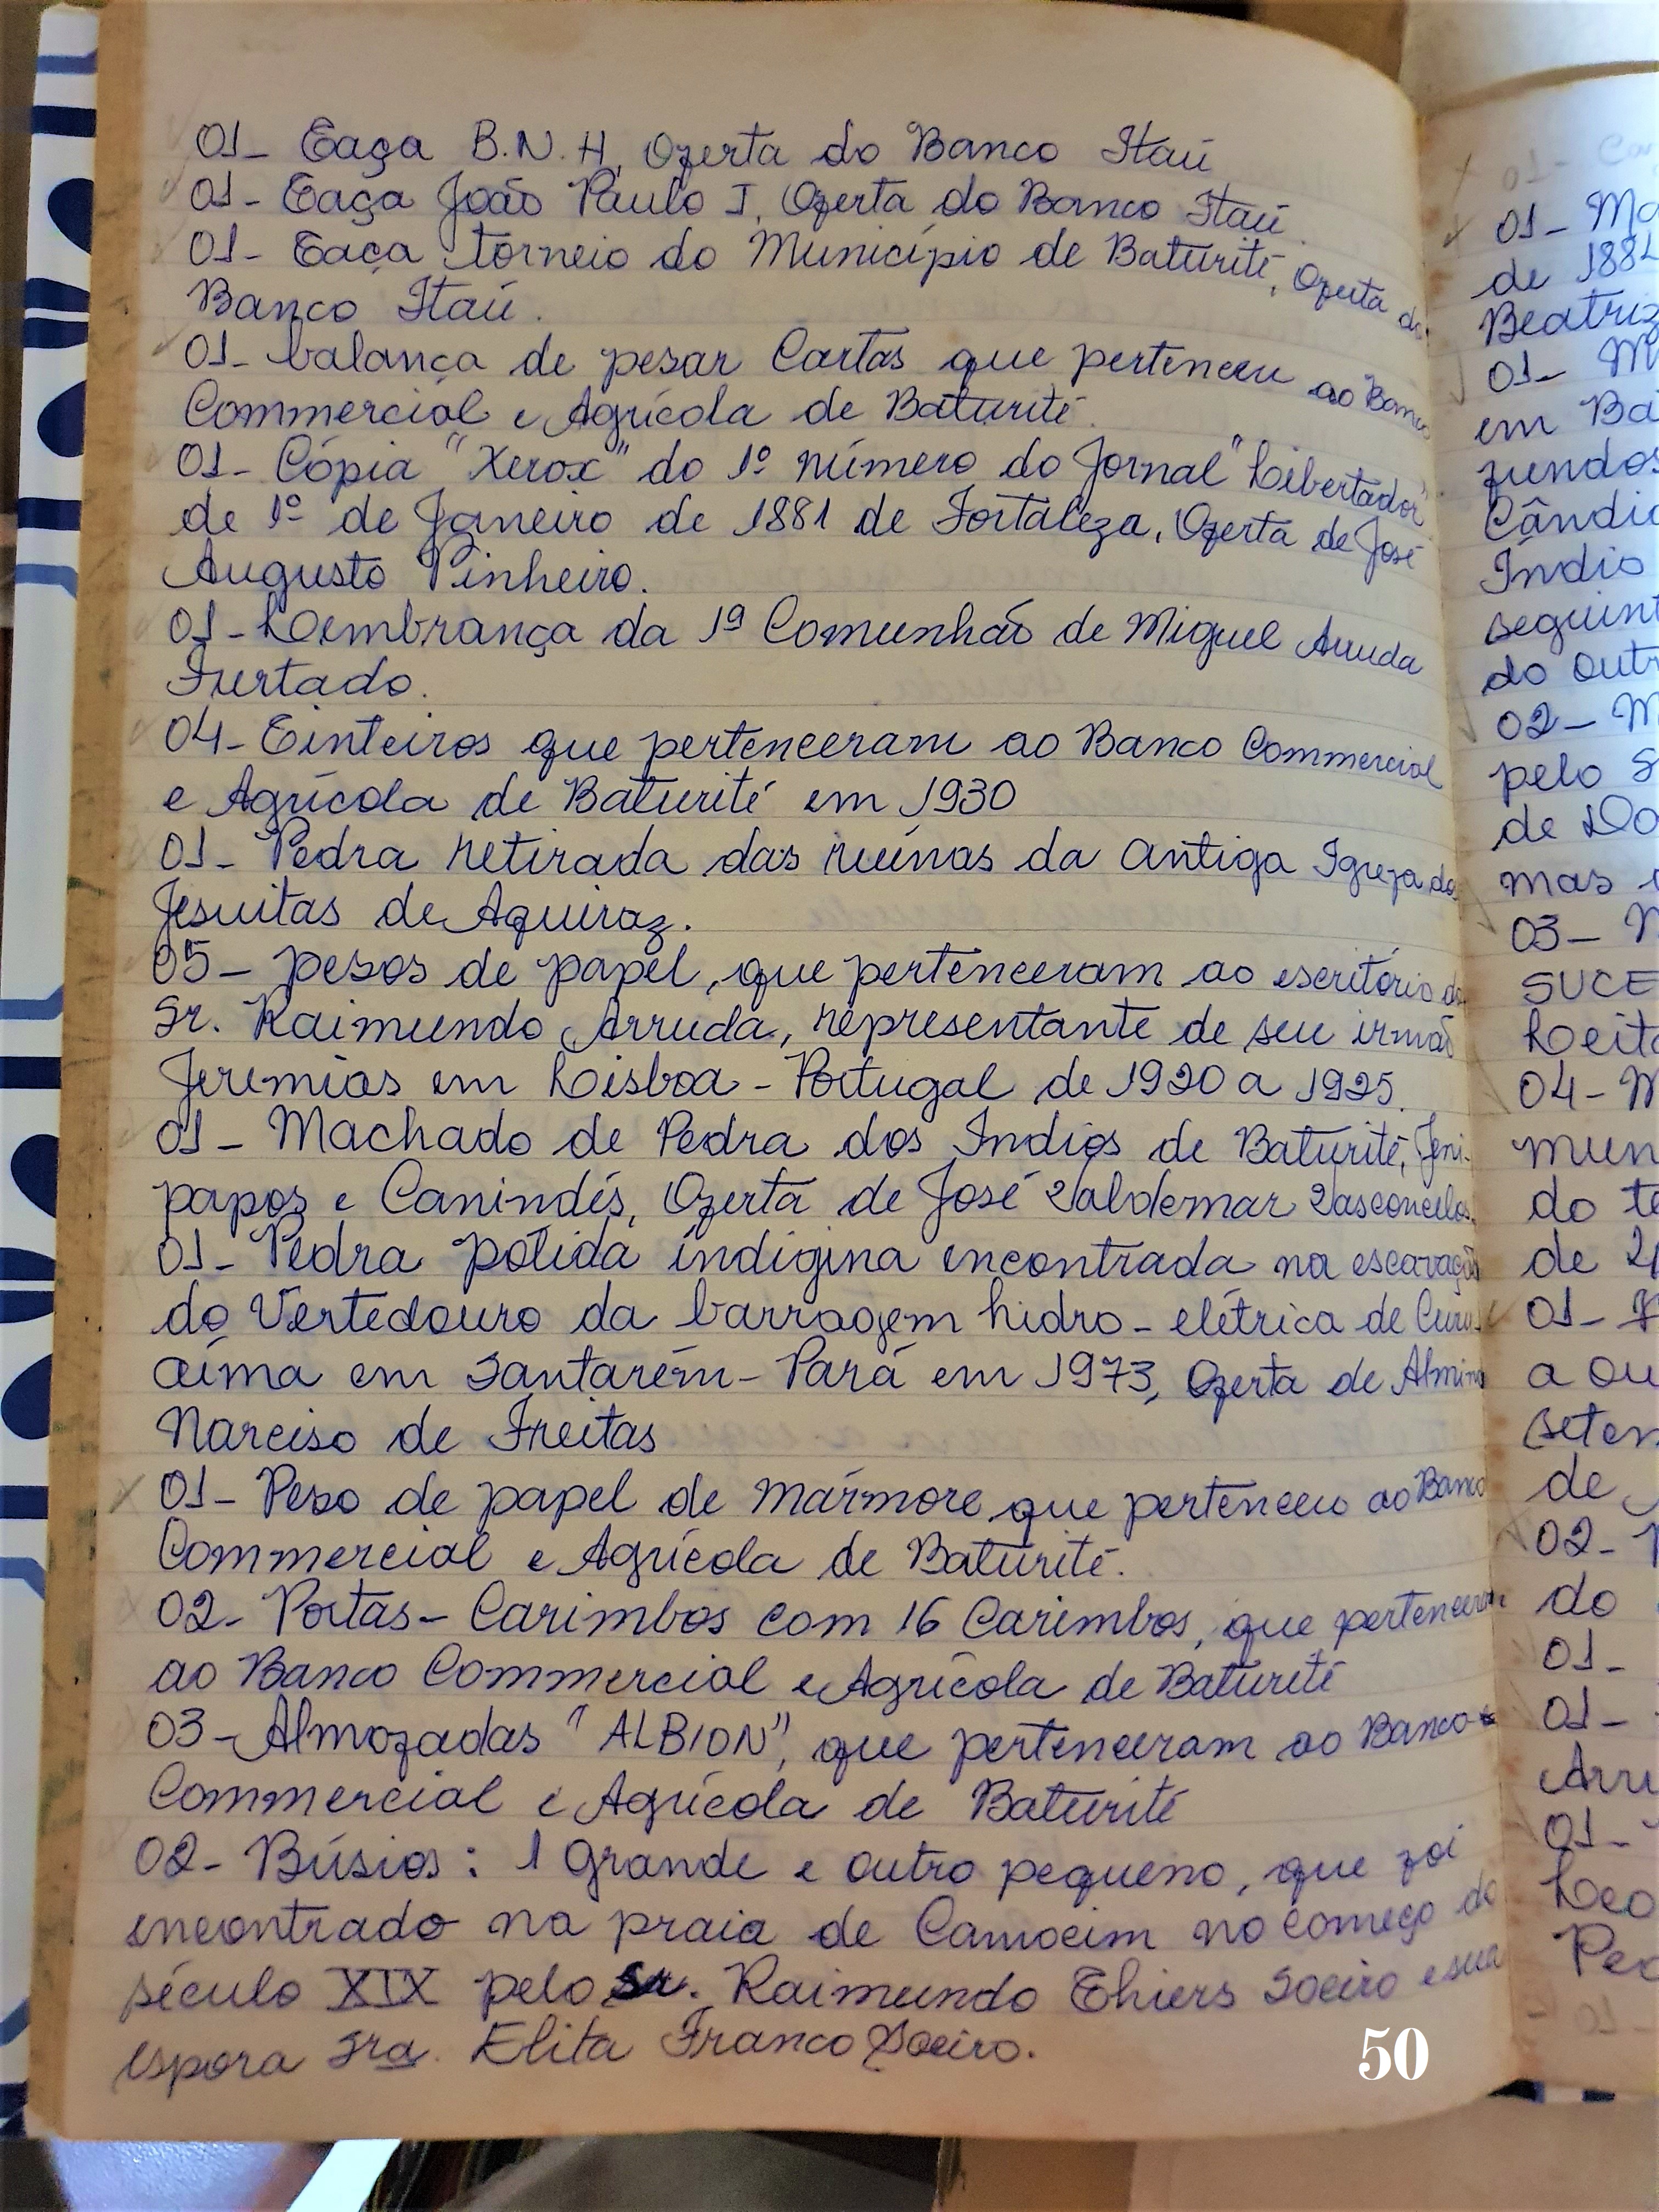 01- Taça B.N.H, Oferta do Banco Itaú
01- Taça João Paulo I, Oferta do Banco Itaú.
01- Taça torneio do Município de Baturité, Oferta do
Banco Itaú.
01- balança de pesar Cartas que pertenceu ao Banco
Commercial e Agrícola de Baturité.
01- Cópia "Xerox" do 1º número do Jornal "Libertador"
de 1º de Janeiro de 1881 de Fortaleza, Oferta de José
Augusto Pinheiro.
01- Lembrança da 1ª Comunhão de Miguel Arruda
Furtado.
04- Tinteiros que pertenceram ao Banco Commercial
e Agrícola de Baturité em 1930
01- Pedra retirada das ruínas da antiga Igreja dos
Jesuitas de Aquiraz.
05- pesos de papel, que pertenceram ao escritório do
Sr. Raimundo Arruda, representante de seu irmão
Jeremias em Lisboa - Portugal de 1920 a 1925.
01- Machado de Pedra dos Índios de Baturité, Jeni-
papos e Canindés, Oferta de José Valdemar Vasconcelos.
01- Pedra polida indígina encontrada na escavação
do Vertedouro da barragem hidro-elétrica de Curu-
aíma em Santarém - Pará em 1973, Oferta de Almino
Narciso de Freitas
01- Peso de papel de mármore que pertenceu ao Banco
Commercial e Agrícola de Baturité.
02- Portas-Carimbos com 16 Carimbos, que pertenceram
ao Banco Commercial e Agrícola de Baturité
03- Almofadas "ALBION", que pertenceram ao Banco
Commercial e Agrícola de Baturité
02- Búsios: 1 grande e outro pequeno, que foi
encontrado na praia de Camocim no começo do
século XIX pelo Sr. Raimundo Thiers Soeiro e sua
espora Sra. Elita Franco Soeiro.
50
01- Ma
de 1881
Beatriz
01- M
em Ba
fundos
Cândid
Índio
seguint
do outr
02- M
pelo S
de Do
mas
03- N
SUCE
Leit
04- M
mun
do te
de
01-
a ou
seten
de
02-
do
01-
01-
Arru
01-
Leo
Ped